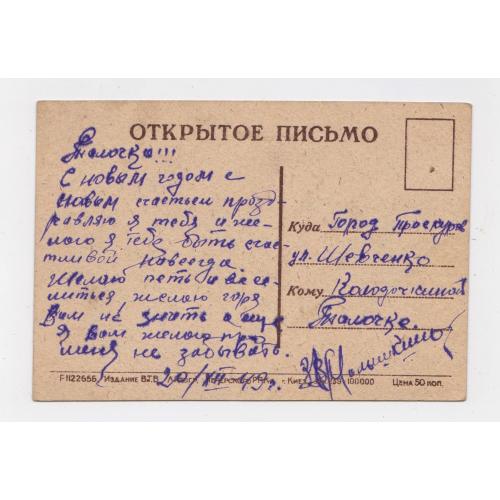 ОТКРЫТОЕ ПИСЬМО
Талочка!!!
С новым годом с
новым счастьем прозд-
равляю я тебя и же-
лаю я тебе быть счас-
тливой навсегда
Желаю петь и весе-
литься желаю горя
Вам не знать а еще
Я вам желаю про
меня не забывать.
Куда Город Проскуров
ул. Шевченко
Кому Колодочкиной
Талочке.
20/XII 49 г.
Г-1122656 Издание В.Т.В. г. Киев 100000 Цена 50 коп.